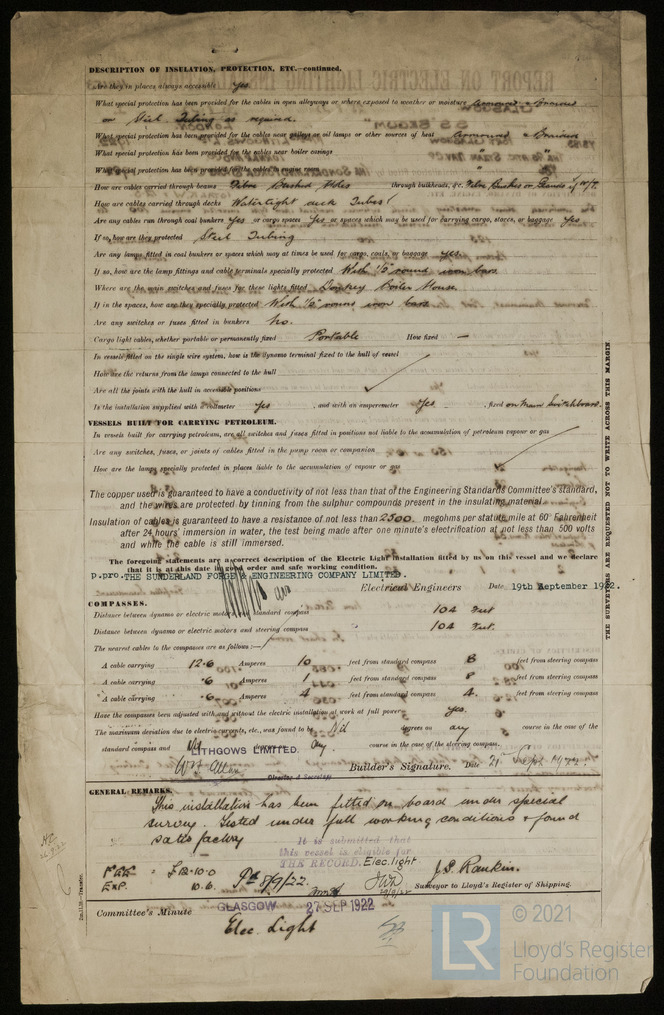 DESCRIPTION OF INSULATION, PROTECTION, ETC.—continued.
Are they in places always accessible Yes
What special protection has been provided for the cables in open alleyways or where exposed to weather or moisture Armoured & Braided
or Steel Tubing as required.
What special protection has been provided for the cables near galleys or oil lamps or other sources of heat Armoured & Braided
What special protection has been provided for the cables near boiler casings "
What special protection has been provided for the cables in engine room "
How are cables carried through beams Fibre Bushed Holes through bulkheads, &c. Fibre Bushes or Glands if W/T.
How are cables carried through decks Watertight deck Tubes
Are any cables run through coal bunkers Yes or cargo spaces Yes or spaces which may be used for carrying cargo, stores, or baggage Yes
If so, how are they protected Steel Tubing
Are any lamps fitted in coal bunkers or spaces which may at times be used for cargo, coals, or baggage yes.
If so, how are the lamp fittings and cable terminals specially protected With 1/2" round iron bars
Where are the main switches and fuses for these lights fitted Donkey boiler House
If in the spaces, how are they specially protected With 1/2" round iron bars
Are any switches or fuses fitted in bunkers No.
Cargo light cables, whether portable or permanently fixed Portable How fixed —
In vessels fitted on the single wire system, how is the dynamo terminal fixed to the hull of vessel
How are the returns from the lamps connected to the hull
Are all the joints with the hull in accessible positions
Is the installation supplied with a voltmeter Yes, and with an amperemeter Yes, fixed on Main Switchboard.
VESSELS BUILT FOR CARRYING PETROLEUM.
In vessels built for carrying petroleum, are all switches and fuses fitted in positions not liable to the accumulation of petroleum vapour or gas
Are any switches, fuses, or joints of cables fitted in the pump room or companion
How are the lamps specially protected in places liable to the accumulation of vapour or gas
The copper used is guaranteed to have a conductivity of not less than that of the Engineering Standards Committee's standard,
and the wires are protected by tinning from the sulphur compounds present in the insulating material.
Insulation of cables is guaranteed to have a resistance of not less than 2500 megohms per statute mile at 60° Fahrenheit
after 24 hours' immersion in water, the test being made after one minute's electrification at not less than 500 volts
and while the cable is still immersed.
The foregoing statements are a correct description of the Electric Light installation fitted by us on this vessel and we declare
that it is at this date in good order and safe working condition.
p.pro. THE SUNDERLAND FORGE & ENGINEERING COMPANY LIMITED.
Electrical Engineers Date 19th September 1922.
COMPASSES.
Distance between dynamo or electric motors and standard compass 104 Feet
Distance between dynamo or electric motors and steering compass 104 Feet.
The nearest cables to the compasses are as follows:—
A cable carrying 12.6 Amperes 10 feet from standard compass 8 feet from steering compass
A cable carrying .6 Amperes 1 feet from standard compass 8 feet from steering compass
A cable carrying .6 Amperes 4 feet from standard compass 4. feet from steering compass
Have the compasses been adjusted with and without the electric installation at work at full power Yes.
The maximum deviation due to electric currents, etc., was found to be Nil degrees on any course in the case of the
standard compass and Nil degrees on any course in the case of the steering compass.
LITHGOWS LIMITED.
Director & Secretary
Builder's Signature. Date 21st Sept. 1922.
GENERAL REMARKS.
This installation has been fitted on board under special
survey. Tested under full working conditions & found
satisfactory
It is submitted that
this vessel is eligible for
THE RECORD. Elec. light
Fee £12-10-0
Exp. 10.6.
J. S. Rankin.
Surveyor to Lloyd's Register of Shipping.
Committee's Minute GLASGOW 27 SEP 1922
Elec. Light
THE SURVEYORS ARE REQUESTED NOT TO WRITE ACROSS THIS MARGIN
LR
© 2021
Lloyd's Register
Foundation